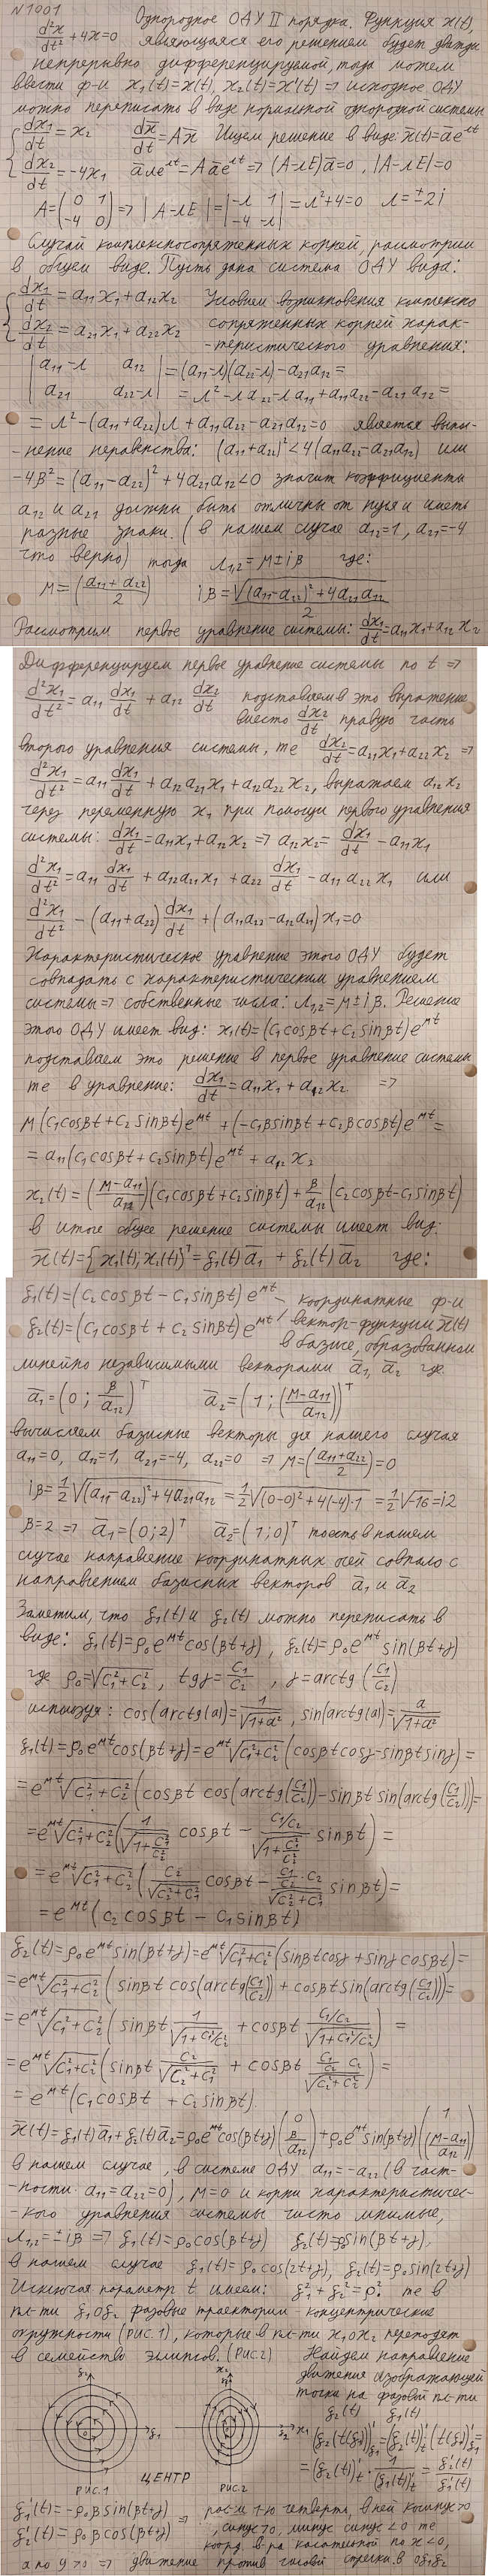 N 1001 Однородное ОДУ II порядка. Функция x(t),
d²x/dt² + 4x = 0 являющаяся его решением будет дважды
непрерывно дифференцируемой, тогда можем
ввести ф-и x₁(t) = x(t), x₂(t) = x'(t) ⇒ исходное ОДУ
можно переписать в виде нормальной однородной системы
{ dx₁/dt = x₂ dx̄/dt = Ax̄ Ищем решение в виде: x̄(t) = āe^{λt}
dx₂/dt = -4x₁ āλe^{λt} = Aāe^{λt} ⇒ (A-λE)ā = 0, |A-λE| = 0
A = (0 1; -4 0) ⇒ |A-λE| = |-λ 1; -4 -λ| = λ²+4 = 0 λ = ±2i
Случай комплексносопряженных корней, рассмотрим
в общем виде. Пусть дана система ОДУ вида:
{ dx₁/dt = a₁₁x₁ + a₁₂x₂ Условием возникновения комплексно
dx₂/dt = a₂₁x₁ + a₂₂x₂ сопряженных корней харак-
-теристического уравнения:
|a₁₁-λ a₁₂; a₂₁ a₂₂-λ| = (a₁₁-λ)(a₂₂-λ) - a₂₁a₁₂ =
= λ² - λa₂₂ - λa₁₁ + a₁₁a₂₂ - a₂₁a₁₂ =
= λ² - (a₁₁+a₂₂)λ + a₁₁a₂₂ - a₂₁a₁₂ = 0 является выпол-
-нение неравенства: (a₁₁+a₂₂)² < 4(a₁₁a₂₂ - a₂₁a₁₂) или
-4β² = (a₁₁-a₂₂)² + 4a₂₁a₁₂ < 0 значит коэффициенты
a₁₂ и a₂₁ должны быть отличны от нуля и иметь
разные знаки. (в нашем случае a₁₂=1, a₂₁=-4
что верно) тогда λ₁,₂ = μ ± iβ где:
μ = (a₁₁+a₂₂)/2 iβ = √((a₁₁-a₂₂)² + 4a₂₁a₁₂)/2
Рассмотрим первое уравнение системы: dx₁/dt = a₁₁x₁ + a₁₂x₂
Дифференцируем первое уравнение системы по t ⇒
d²x₁/dt² = a₁₁ dx₁/dt + a₁₂ dx₂/dt подставляем в это выражение
вместо dx₂/dt правую часть
второго уравнения системы, те dx₂/dt = a₂₁x₁ + a₂₂x₂ ⇒
d²x₁/dt² = a₁₁ dx₁/dt + a₁₂a₂₁x₁ + a₁₂a₂₂x₂, выражаем a₁₂x₂
через переменную x₁ при помощи первого уравнения
системы: dx₁/dt = a₁₁x₁ + a₁₂x₂ ⇒ a₁₂x₂ = dx₁/dt - a₁₁x₁
d²x₁/dt² = a₁₁ dx₁/dt + a₁₂a₂₁x₁ + a₂₂ dx₁/dt - a₁₁a₂₂x₁ или
d²x₁/dt² - (a₁₁+a₂₂) dx₁/dt + (a₁₁a₂₂ - a₁₂a₂₁)x₁ = 0
Характеристическое уравнение этого ОДУ будет
совпадать с характеристическим уравнением
системы ⇒ собственные числа: λ₁,₂ = μ ± iβ. Решение
этого ОДУ имеет вид: x₁(t) = (c₁cosβt + c₂sinβt)e^{μt}
подставляем это решение в первое уравнение системы
те в уравнение: dx₁/dt = a₁₁x₁ + a₁₂x₂ ⇒
μ(c₁cosβt + c₂sinβt)e^{μt} + (-c₁βsinβt + c₂βcosβt)e^{μt} =
= a₁₁(c₁cosβt + c₂sinβt)e^{μt} + a₁₂x₂
x₂(t) = ((μ-a₁₁)/a₁₂)(c₁cosβt + c₂sinβt) + β/a₁₂ (c₂cosβt - c₁sinβt)
в итоге общее решение системы имеет вид:
x̄(t) = {x₁(t); x₂(t)}ᵀ = ξ₁(t)ā₁ + ξ₂(t)ā₂ где:
ξ₁(t) = (c₂cosβt - c₁sinβt)e^{μt} - координатные ф-и
ξ₂(t) = (c₁cosβt + c₂sinβt)e^{μt} вектор-функции x̄(t)
в базисе, образованном
линейно независимыми векторами ā₁, ā₂ где
ā₁ = (0; β/a₁₂)ᵀ ā₂ = (1; (μ-a₁₁)/a₁₂)ᵀ
вычисляем базисные векторы для нашего случая
a₁₁=0, a₁₂=1, a₂₁=-4, a₂₂=0 ⇒ μ = (a₁₁+a₂₂)/2 = 0
iβ = ½√((a₁₁-a₂₂)² + 4a₂₁a₁₂) = ½√((0-0)² + 4(-4)·1) = ½√-16 = i2
β=2 ⇒ ā₁ = (0;2)ᵀ ā₂ = (1;0)ᵀ то есть в нашем
случае направление координатных осей совпало с
направлением базисных векторов ā₁ и ā₂
Заметим, что ξ₁(t) и ξ₂(t) можно переписать в
виде: ξ₁(t) = ρ₀e^{μt}cos(βt+γ), ξ₂(t) = ρ₀e^{μt}sin(βt+γ)
где ρ₀ = √(c₁²+c₂²), tgγ = c₁/c₂, γ = arctg(c₁/c₂)
используя: cos(arctg(a)) = 1/√(1+a²), sin(arctg(a)) = a/√(1+a²)
ξ₁(t) = ρ₀e^{μt}cos(βt+γ) = e^{μt}√(c₁²+c₂²)(cosβt cosγ - sinβt sinγ) =
= e^{μt}√(c₁²+c₂²)(cosβt cos(arctg(c₁/c₂)) - sinβt sin(arctg(c₁/c₂))) =
= e^{μt}√(c₁²+c₂²)(1/√(1+c₁²/c₂²) cosβt - (c₁/c₂)/√(1+c₁²/c₂²) sinβt) =
= e^{μt}√(c₁²+c₂²)(c₂/√(c₂²+c₁²) cosβt - (c₁/c₂·c₂)/√(c₂²+c₁²) sinβt) =
= e^{μt}(c₂cosβt - c₁sinβt)
ξ₂(t) = ρ₀e^{μt}sin(βt+γ) = e^{μt}√(c₁²+c₂²)(sinβt cosγ + sinγ cosβt) =
= e^{μt}√(c₁²+c₂²)(sinβt cos(arctg(c₁/c₂)) + cosβt sin(arctg(c₁/c₂))) =
= e^{μt}√(c₁²+c₂²)(sinβt 1/√(1+c₁²/c₂²) + cosβt (c₁/c₂)/√(1+c₁²/c₂²)) =
= e^{μt}√(c₁²+c₂²)(sinβt c₂/√(c₂²+c₁²) + cosβt (c₁/c₂·c₂)/√(c₂²+c₁²)) =
= e^{μt}(c₁cosβt + c₂sinβt)
x̄(t) = ξ₁(t)ā₁ + ξ₂(t)ā₂ = ρ₀e^{μt}cos(βt+γ)(0; β/a₁₂) + ρ₀e^{μt}sin(βt+γ)(1; (μ-a₁₁)/a₁₂)
в нашем случае, в системе ОДУ a₁₁ = -a₂₂ (в част-
-ности a₁₁=a₂₂=0), μ=0 и корни характеристичес-
-кого уравнения системы чисто мнимые,
λ₁,₂ = ±iβ ⇒ ξ₁(t) = ρ₀cos(βt+γ) ξ₂(t) = ρ₀sin(βt+γ),
в нашем случае ξ₁(t) = ρ₀cos(2t+γ), ξ₂(t) = ρ₀sin(2t+γ)
Исключая параметр t имеем: ξ₁² + ξ₂² = ρ₀² те в
пл-ти ξ₁Oξ₂ фазовые траектории - концентрические
окружности (РИС.1), которые в пл-ти x₁Ox₂ переходят
в семейство эллипсов. (РИС.2) Найдем направление
движения изображающей
точки на фазовой пл-ти
ξ₂(t) ξ₁(t)
(ξ₂(t(ξ₁)))'ξ₁ = (ξ₂(t))'t · (t(ξ₁))'ξ₁ =
= (ξ₂(t))'t · 1/(ξ₁(t))'t = ξ₂'(t)/ξ₁'(t)
ξ₂ ξ₁ x₂ ξ₁ ξ₂ x₁
РИС.1 ЦЕНТР РИС.2
ξ₁'(t) = -ρ₀βsin(βt+γ) ⇒ рас-м 1-ю четверть, в ней косинус >0
ξ₂'(t) = ρ₀βcos(βt+γ) , синус >0, минус синус <0 те
коорд. в-ра касательной по x <0,
а по y >0 ⇒ движение против часовой стрелки. в Oξ₁ξ₂